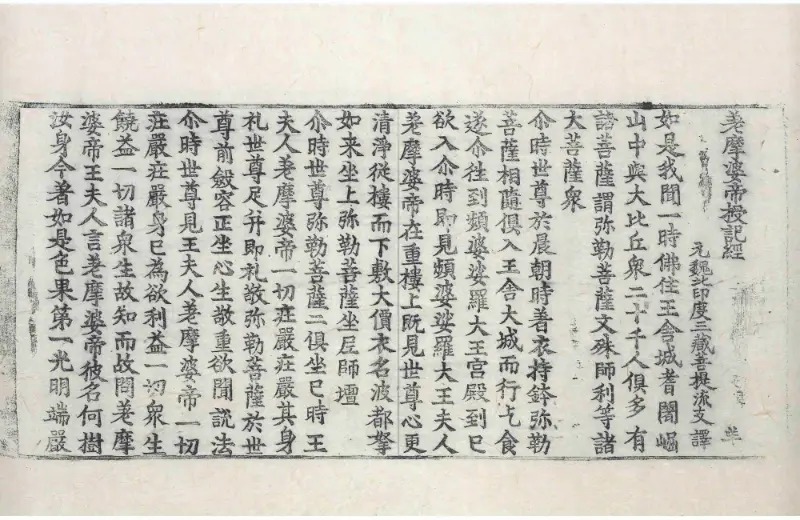 差摩婆帝授記經
元魏北印度三藏菩提流支譯
如是我聞一時佛住王舍城耆闍崛
山中與大比丘衆二十千人俱多有
諸菩薩謂弥勒菩薩文殊師利等諸
大菩薩衆
尒時世尊於晨朝時著衣持鉢弥勒
菩薩相隨俱入王舍大城而行乞食
遂尒往到頻婆娑羅大王宮殿到已
欲入尒時即見頻婆娑羅大王夫人
差摩婆帝在重樓上既見世尊心更
清淨從樓而下敷大價衣名波都拏
如来坐上弥勒菩薩坐尼師壇
尒時世尊弥勒菩薩二俱坐已時王
夫人差摩婆帝一切庄嚴庄嚴其身
礼世尊足并即礼敬弥勒菩薩於世
尊前斂容正坐心生敬重欲聞說法
尒時世尊見王夫人差摩婆帝一切
庄嚴庄嚴身已為欲利益一切衆生
饒益一切諸衆生故知而故問差摩
婆帝王夫人言差摩婆帝彼名何樹
汝身今著如是色果第一光明端嚴